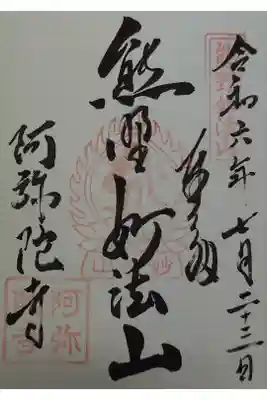 令和六年七月二十三日
奉拝
熊野妙法山
阿弥陀寺
阿弥陀寺